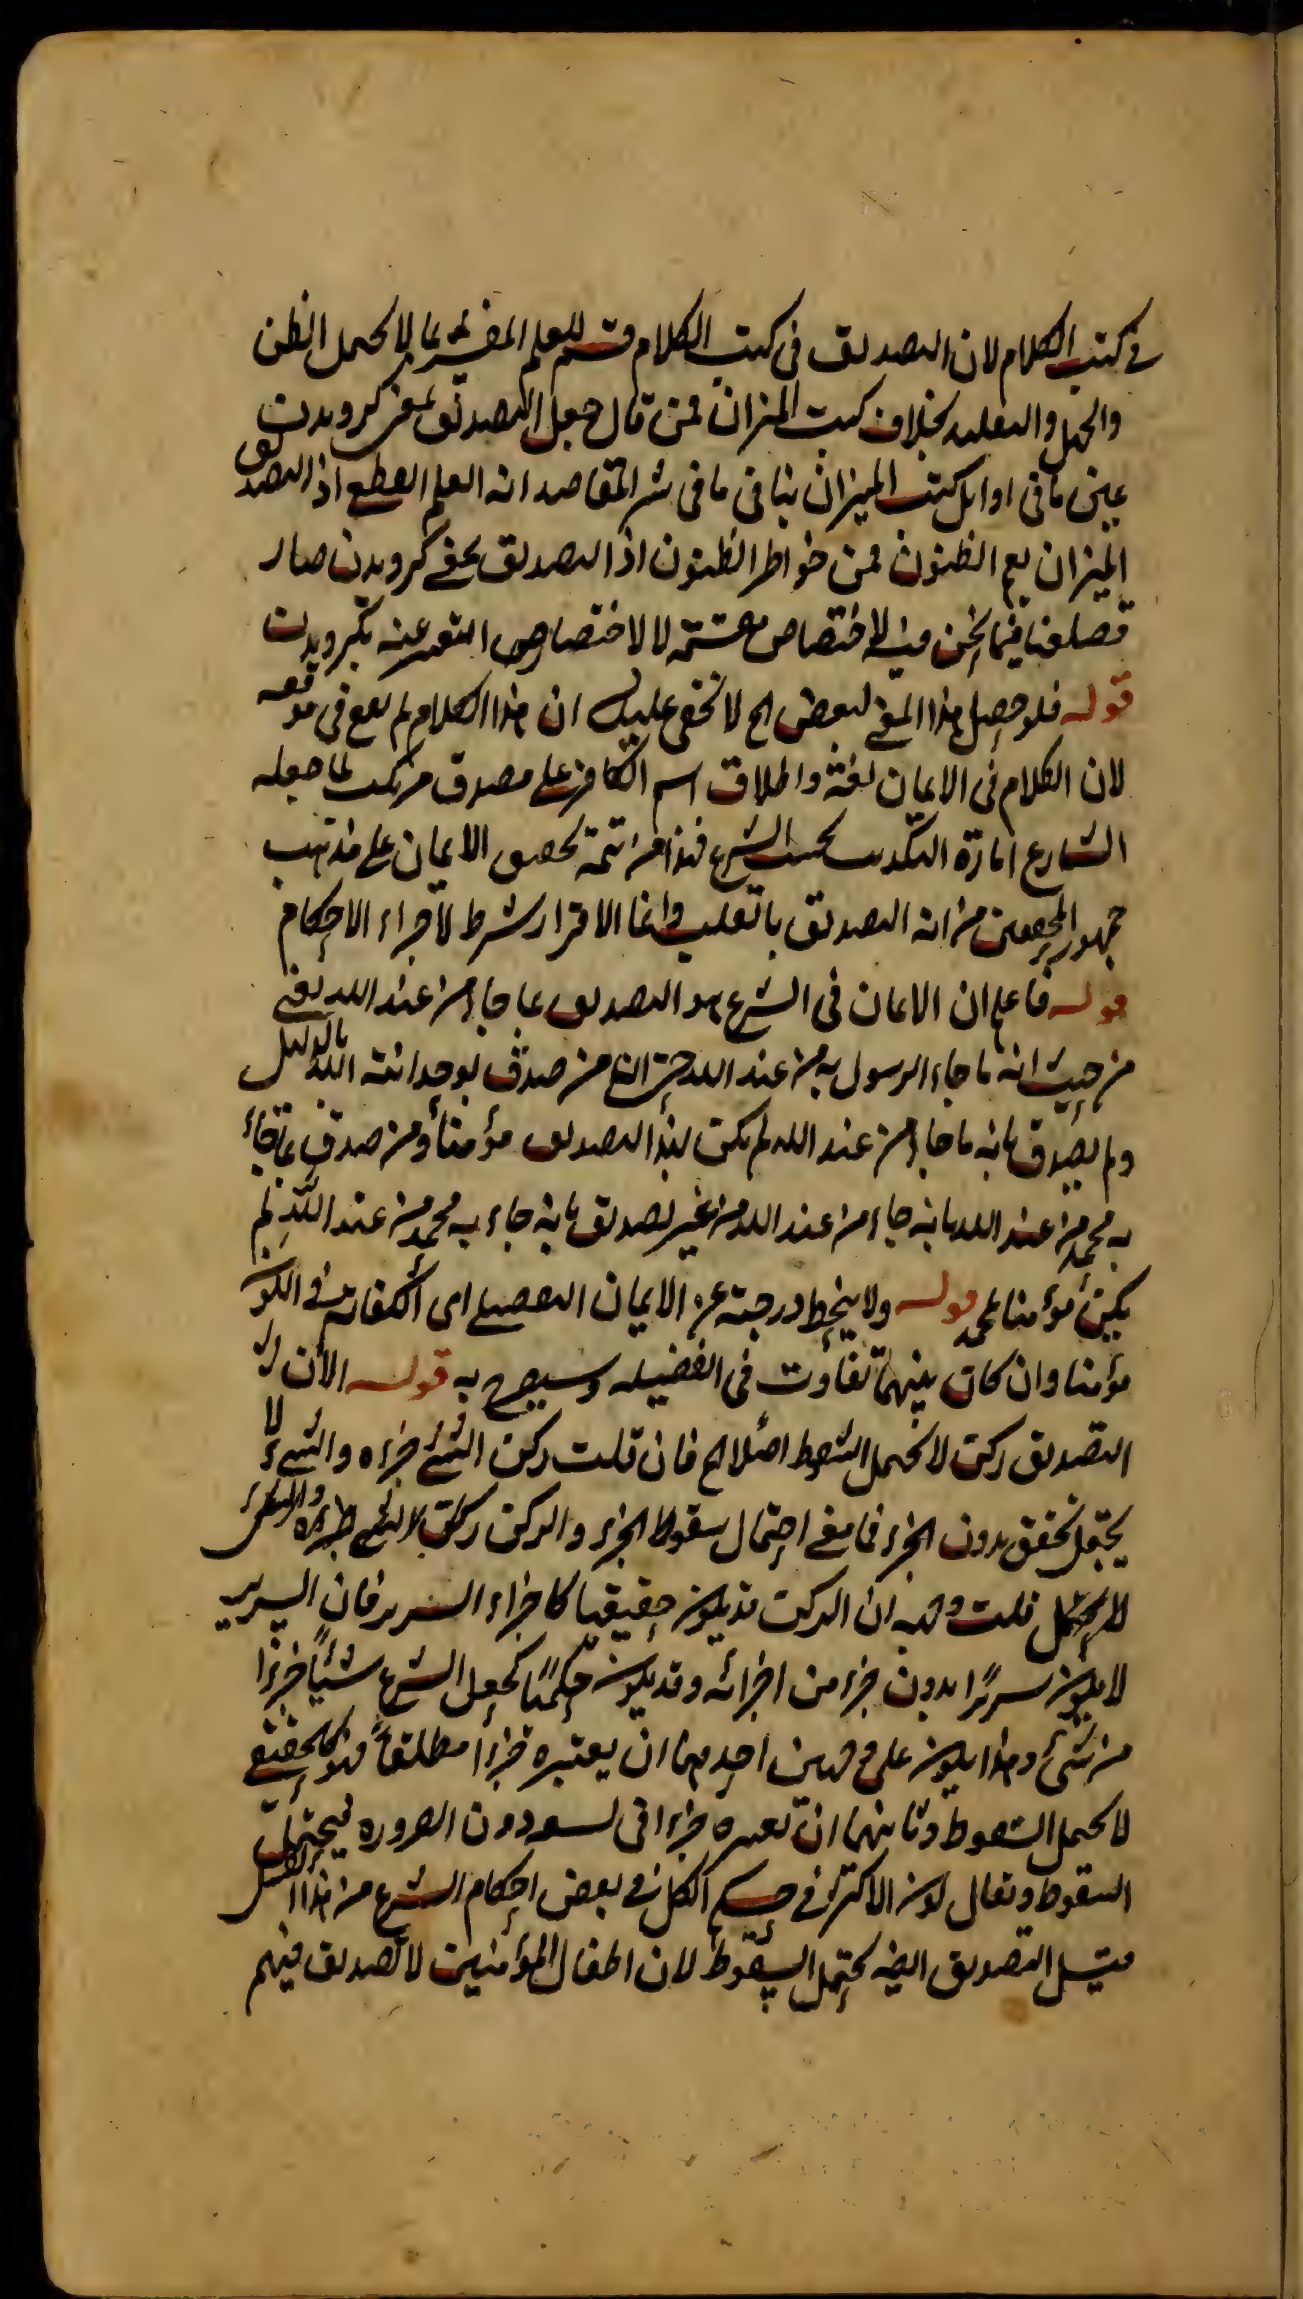 في كتب الكلام لان التصديق في كتب الكلام قسم للعلم المفسر بما لا يحتمل الظن
والجهل والتقليد بخلاف كتب الميزان فمن قال جعل التصديق بمعنى كرويدن
عين ما في اوايل كتب الميزان ينافي ما في شرح المقاصد انه العلم القطعي اذ التصديق
الميزان يعم الظنون فمن خواطر الظنون اذ التصديق بمعنى كرويدن صار
فيما نحن فيه لاختصاص لا لاختصاص التعبير عنه بكرويدن
قوله فلو حصل هذا المعنى لبعض الخ لا يخفى عليك ان هذا الكلام لم يقع في موقعه
لان الكلام في الايمان لغة واطلاق اسم الكافر على مصدق مرتكب لما جعله
الشارع امارة التكذيب بحسب الشرع فهذا من تتمة تحقيق الايمان على مذهب
جمهور المحققين من انه التصديق بالقلب وانما الاقرار شرط لاجراء الاحكام
قوله فاعلم ان الايمان في الشرع هو التصديق بما جاء من عند الله يعني
من حيث انه ما جاء الرسول به من عند الله حتى ان من صدق بوحدانية الله بالدليل
ولم يصدق بانه ما جاء من عند الله لم يكن بهذا التصديق مؤمنا ومن صدق بما جاء
به محمد من عند الله بانه جاء من عند الله من غير تصديق بانه جاء به محمد من عند الله لم
يكن مؤمنا بمحمد قوله ولا ينحط درجته عن الايمان التفصيلي اى في الكون
مؤمنا وان كان بينهما تفاوت في الفضيله وسيصرح به قوله الا ان
التصديق ركن لا يحتمل السقوط اصلا الخ فان قلت ركن الشئ جزاه والشئ لا
يحتمل تحقق بدون الجزء فما معنى احتمال سقوط الجزء والركن ركن
لا يحتمل قلت وجهه ان الركن قد يكون حقيقيا كاجزاء السرير فان السرير
لا يكون سريرًا بدون جزء من اجزائه وقد يكون حكميًا كجعل الشرع شيئًا جزءًا
من شئ وهذا يكون على وجهين احدهما ان يعتبره جزءا مطلقًا فهو كالحقيقي
لا يحتمل السقوط وثانيهما ان يعتبره جزءا في السعه دون الضروره فيحتمل
السقوط ويقال كون الاكثر في حكم الكل في بعض احكام الشرع من هذا القبيل
قيل التصديق ايضا يحتمل السقوط لان اطفال المؤمنين لا تصديق فيهم